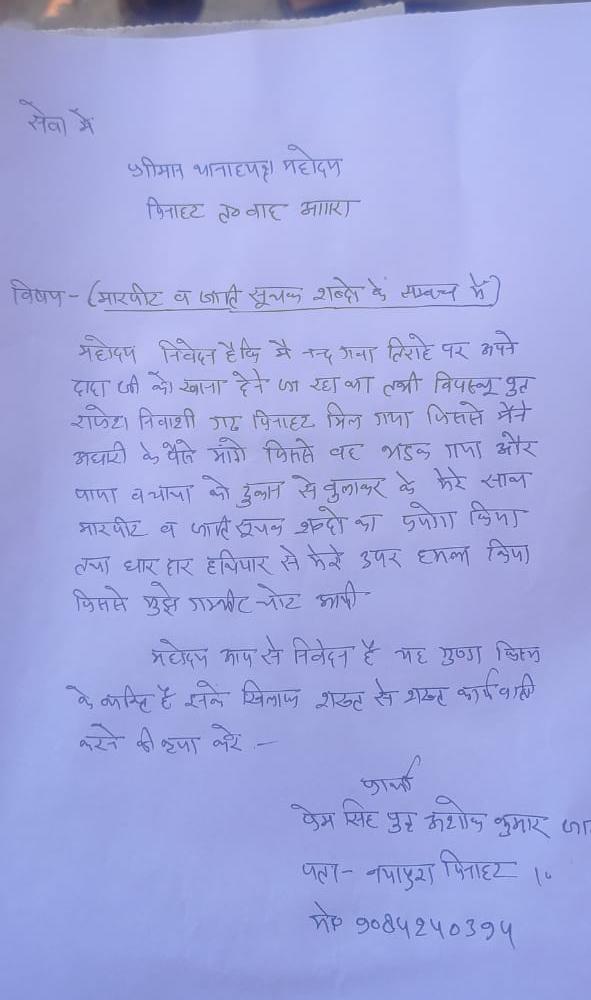 सेवा में
श्रीमान थानाध्यक्ष महोदय
पिनाहट त० वाह आगरा
विषय - (मारपीट व जाति सूचक शब्दो के सम्बन्ध में)
महोदय निवेदन है कि मै नन्द गवा तिराहे पर अपने
दादा जी को खाना देने जा रहा था तभी पुत्र
निवाशी पिनाहट मिल गया जिससे मैंने
अधारी के पैसे मांगे जिससे वह भडक गया और
पापा व चाचा को दुकान से बुलाकर के मेरे साथ
मारपीट व जाति सूचक शब्दो का प्रयोग किया
तथा धार दार हथियार से मेरे उपर हमला किया
जिससे मुझे गम्भीर चोट आयी
महोदय आप से निवेदन है यह गुण्डा किस्म
के व्यक्ति है इनके खिलाफ शख्त से शख्त कार्यवाही
करने की कृपा करे .-
प्रार्थी
प्रेम सिंह पुत्र अशोक कुमार
पता - नयापुरा पिनाहट
मो० 9084240394